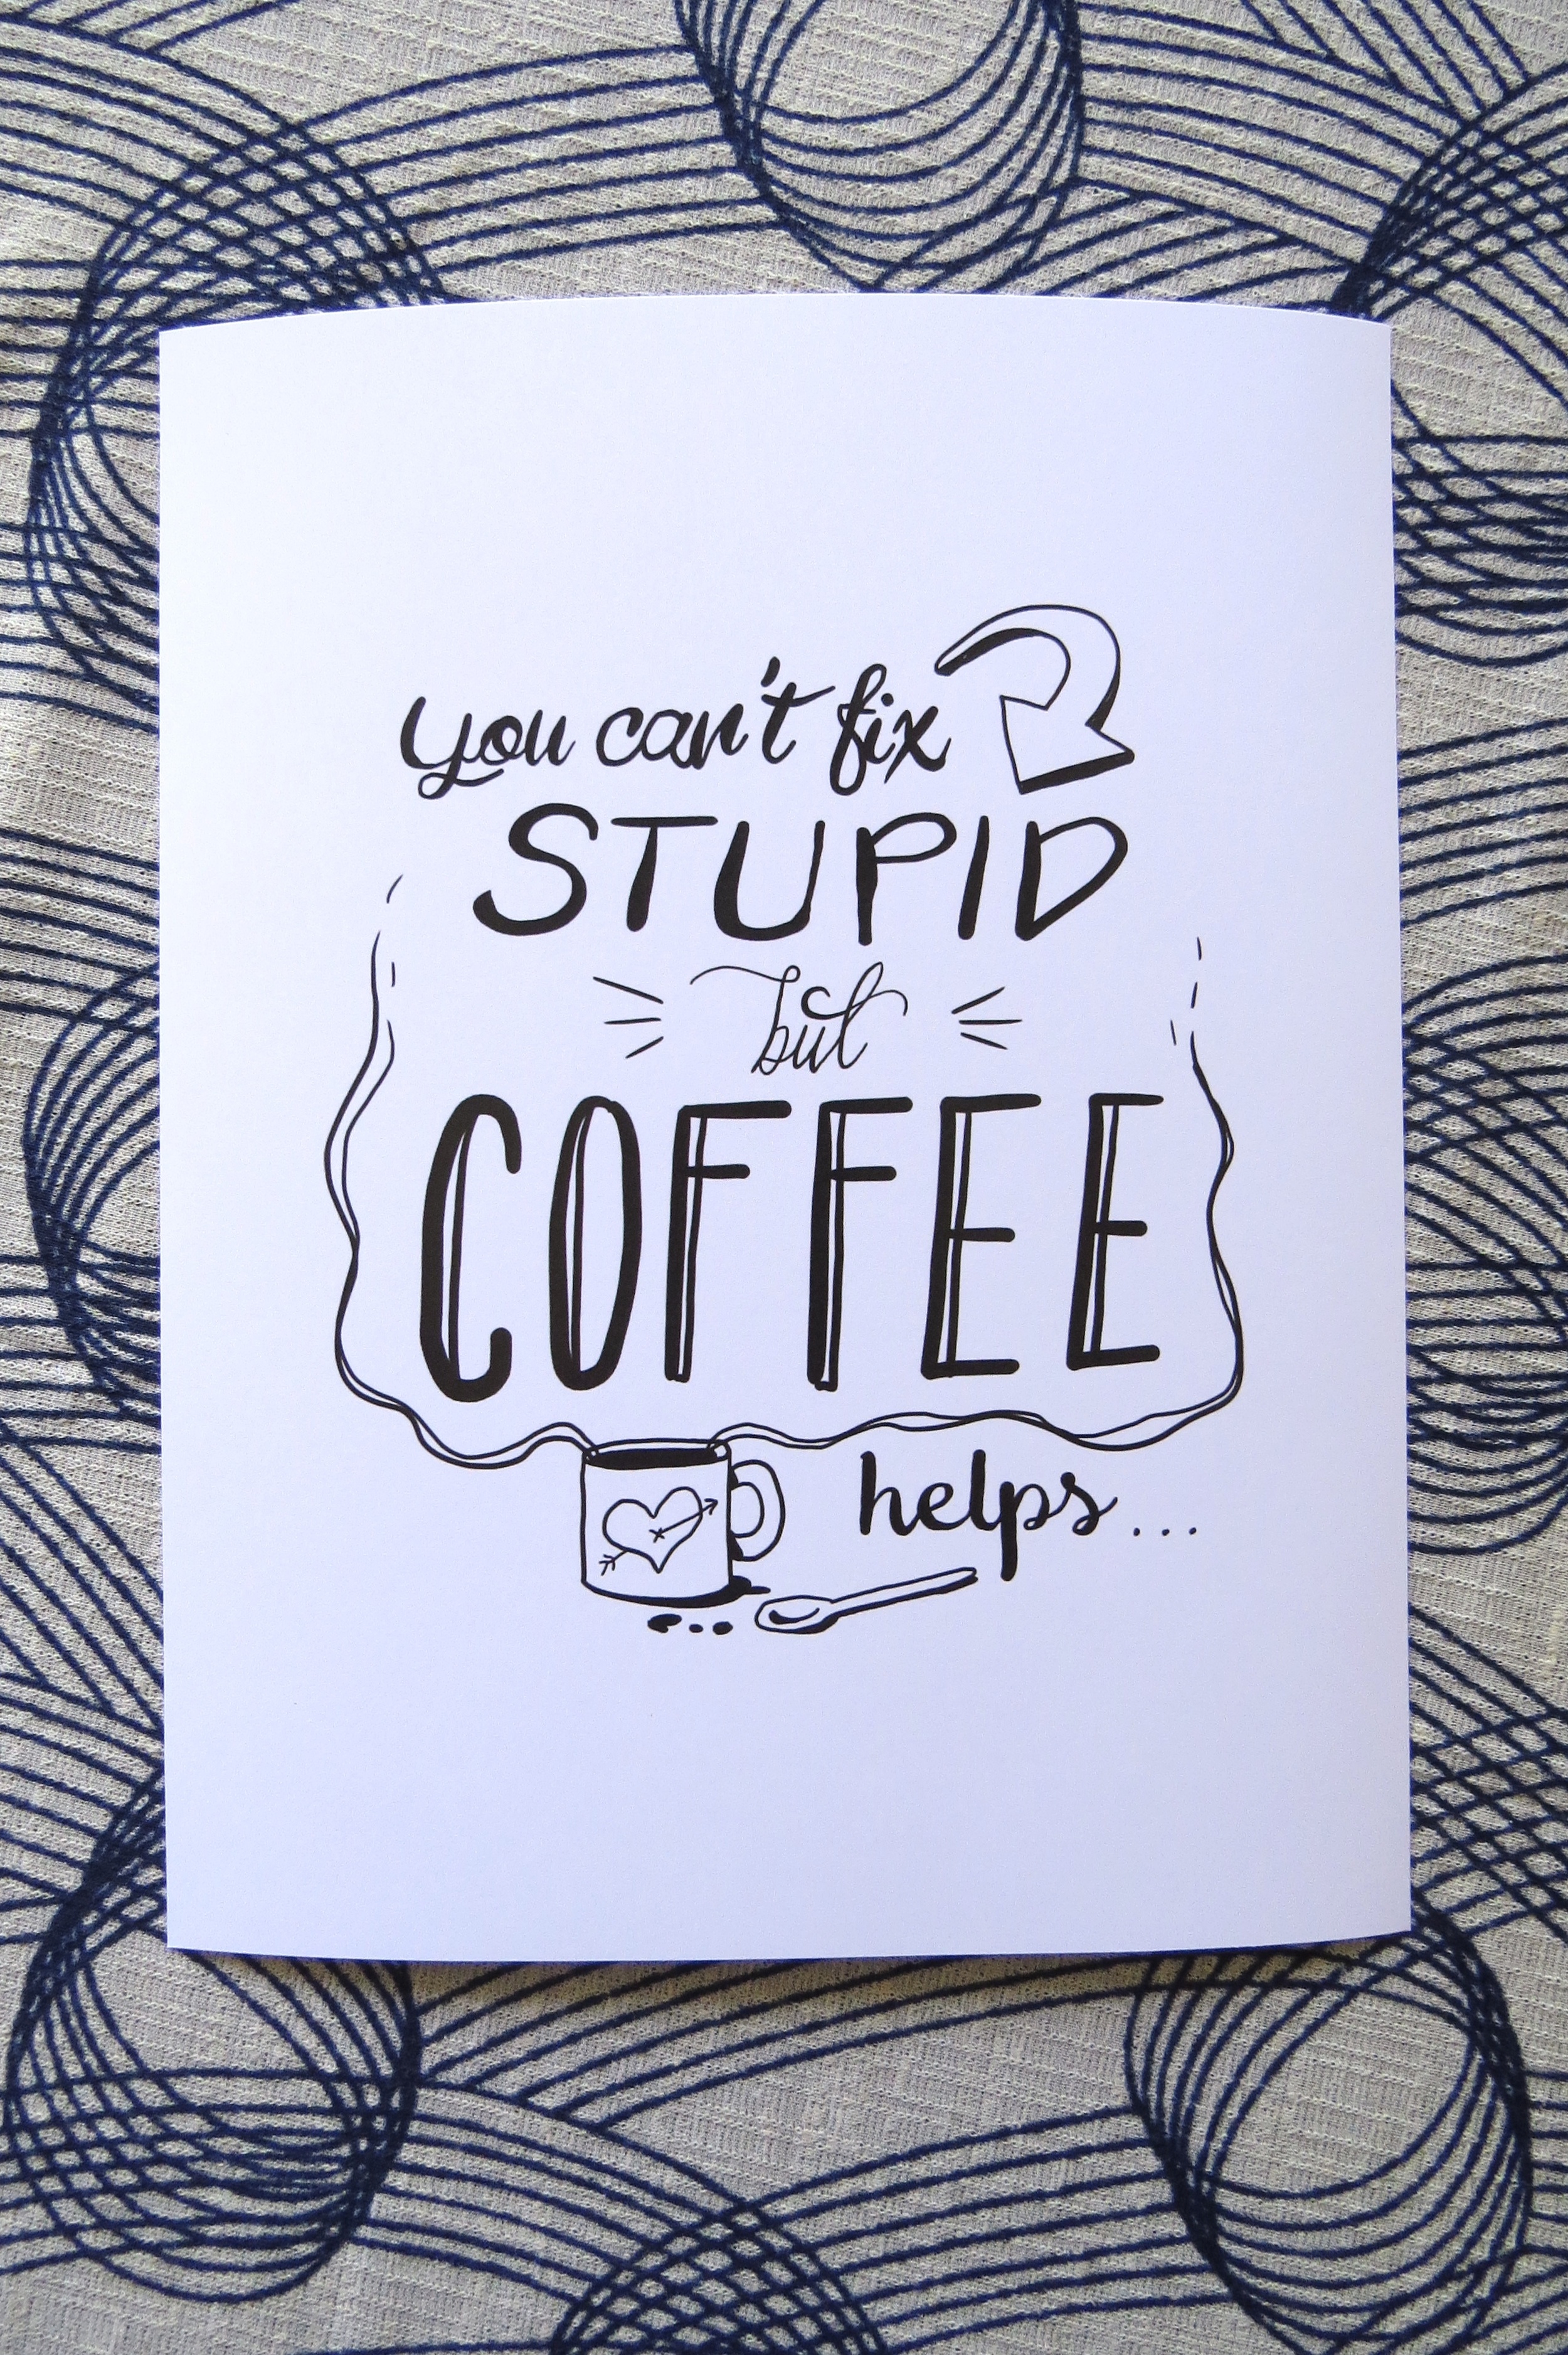 you can't fix
STUPID
but
COFFEE
helps...